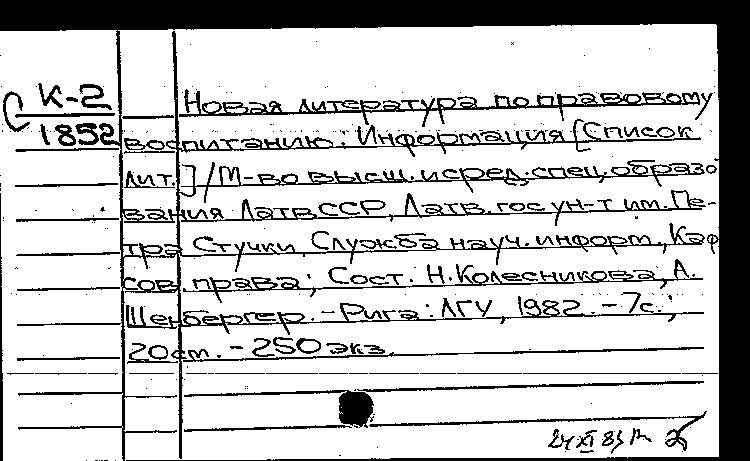 С К-2
1852
Новая литература по правовому
воспитанию: Информация [Список
лит.] / М-во высш. и сред. спец. образо
вания ЛатвССР, Латв. гос ун-т им. Пе-
тра Стучки, Служба науч. информ., Каф
сов. права; Сост. Н. Колесникова, А.
Шенбергер. - Рига: ЛГУ, 1982. - 7с.;
20см. - 250 экз.
24 XI 83